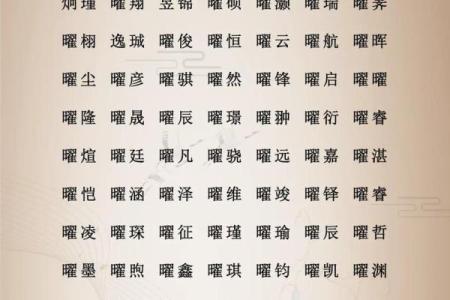 炯瑾 曜翔 昱锦 曜硕 曜灏 曜瑞 曜霁
曜栩 逸珹 曜俊 曜恒 曜云 曜航 曜晖
曜尘 曜彦 曜骐 曜然 曜锋 曜启 曜曜
曜隆 曜晟 曜辰 曜璟 曜翀 曜衍 曜睿
曜煊 曜廷 曜凡 曜骁 曜远 曜嘉 曜湛
曜恺 曜涵 曜泽 曜维 曜竣 曜铎 曜睿
曜凌 曜琛 曜征 曜瑾 曜瑜 曜辰 曜哲
曜墨 曜煦 曜鑫 曜琪 曜钧 曜凯 曜渊